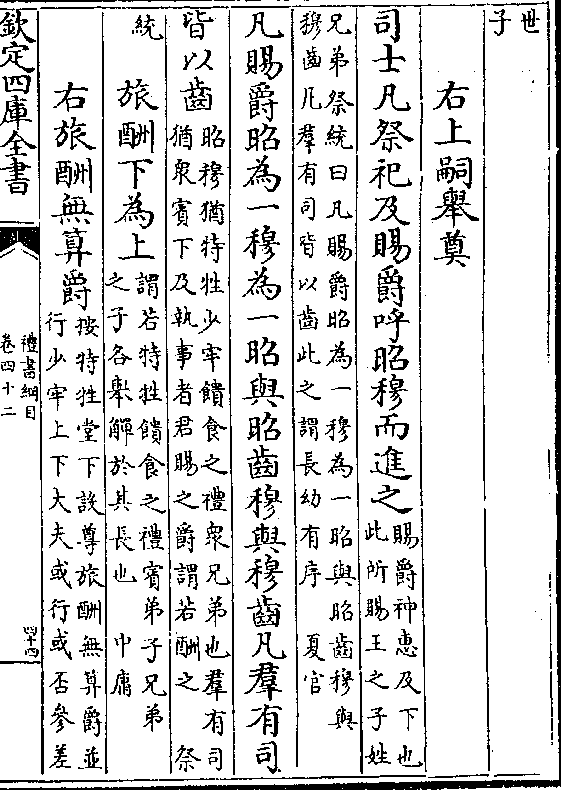 世
子
右上嗣舉奠
司士凡祭祀及賜爵呼昭穆而進之
賜爵神惠及下也
此所賜王之子姓
兄弟祭統曰凡賜爵昭為一穆為一昭與昭齒穆與
穆齒凡羣有司皆以齒此之謂長幼有序 夏官
凡賜爵昭為一穆為一昭與昭齒穆與穆齒凡羣有司
皆以齒
昭穆猶特牲少牢饋食之禮衆兄弟也羣有司
猶衆賓下及執事者君賜之爵謂若酬之 祭
統
旅酬下為上
謂若特牲饋食之禮賓弟子兄弟
之子各舉觶於其長也 中庸
右旅酬無算爵
按特牲堂下設尊旅酬無算爵並
行少牢上下大夫或行或否參差
欽定四庫全書
禮書綱目
卷四十二
四十四